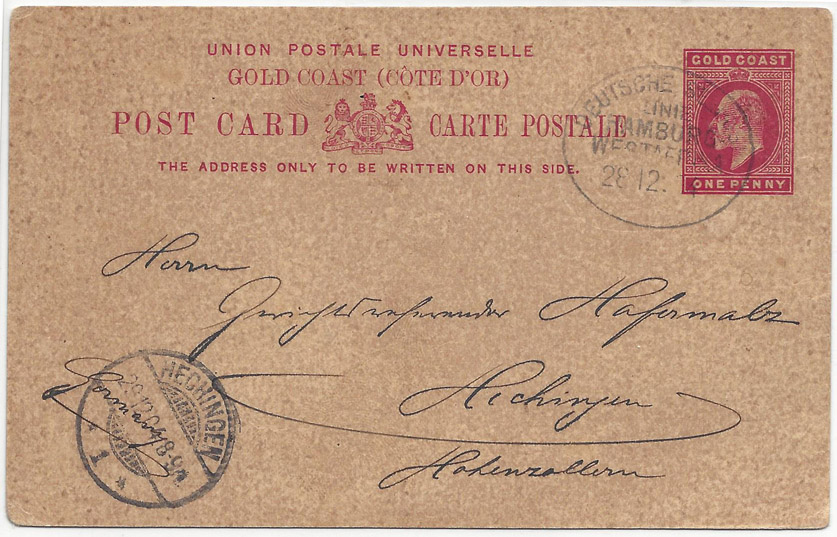 UNION POSTALE UNIVERSELLE
GOLD COAST (CÔTE D'OR)
POST CARD CARTE POSTALE
THE ADDRESS ONLY TO BE WRITTEN ON THIS SIDE.
GOLD COAST
ONE PENNY
DEUTSCHE
LINIE
HAMBURG
28 12.
Herrn
Gerichtsreferendar Hafermalz
Hechingen
Hohenzollern
Germany
HECHINGEN